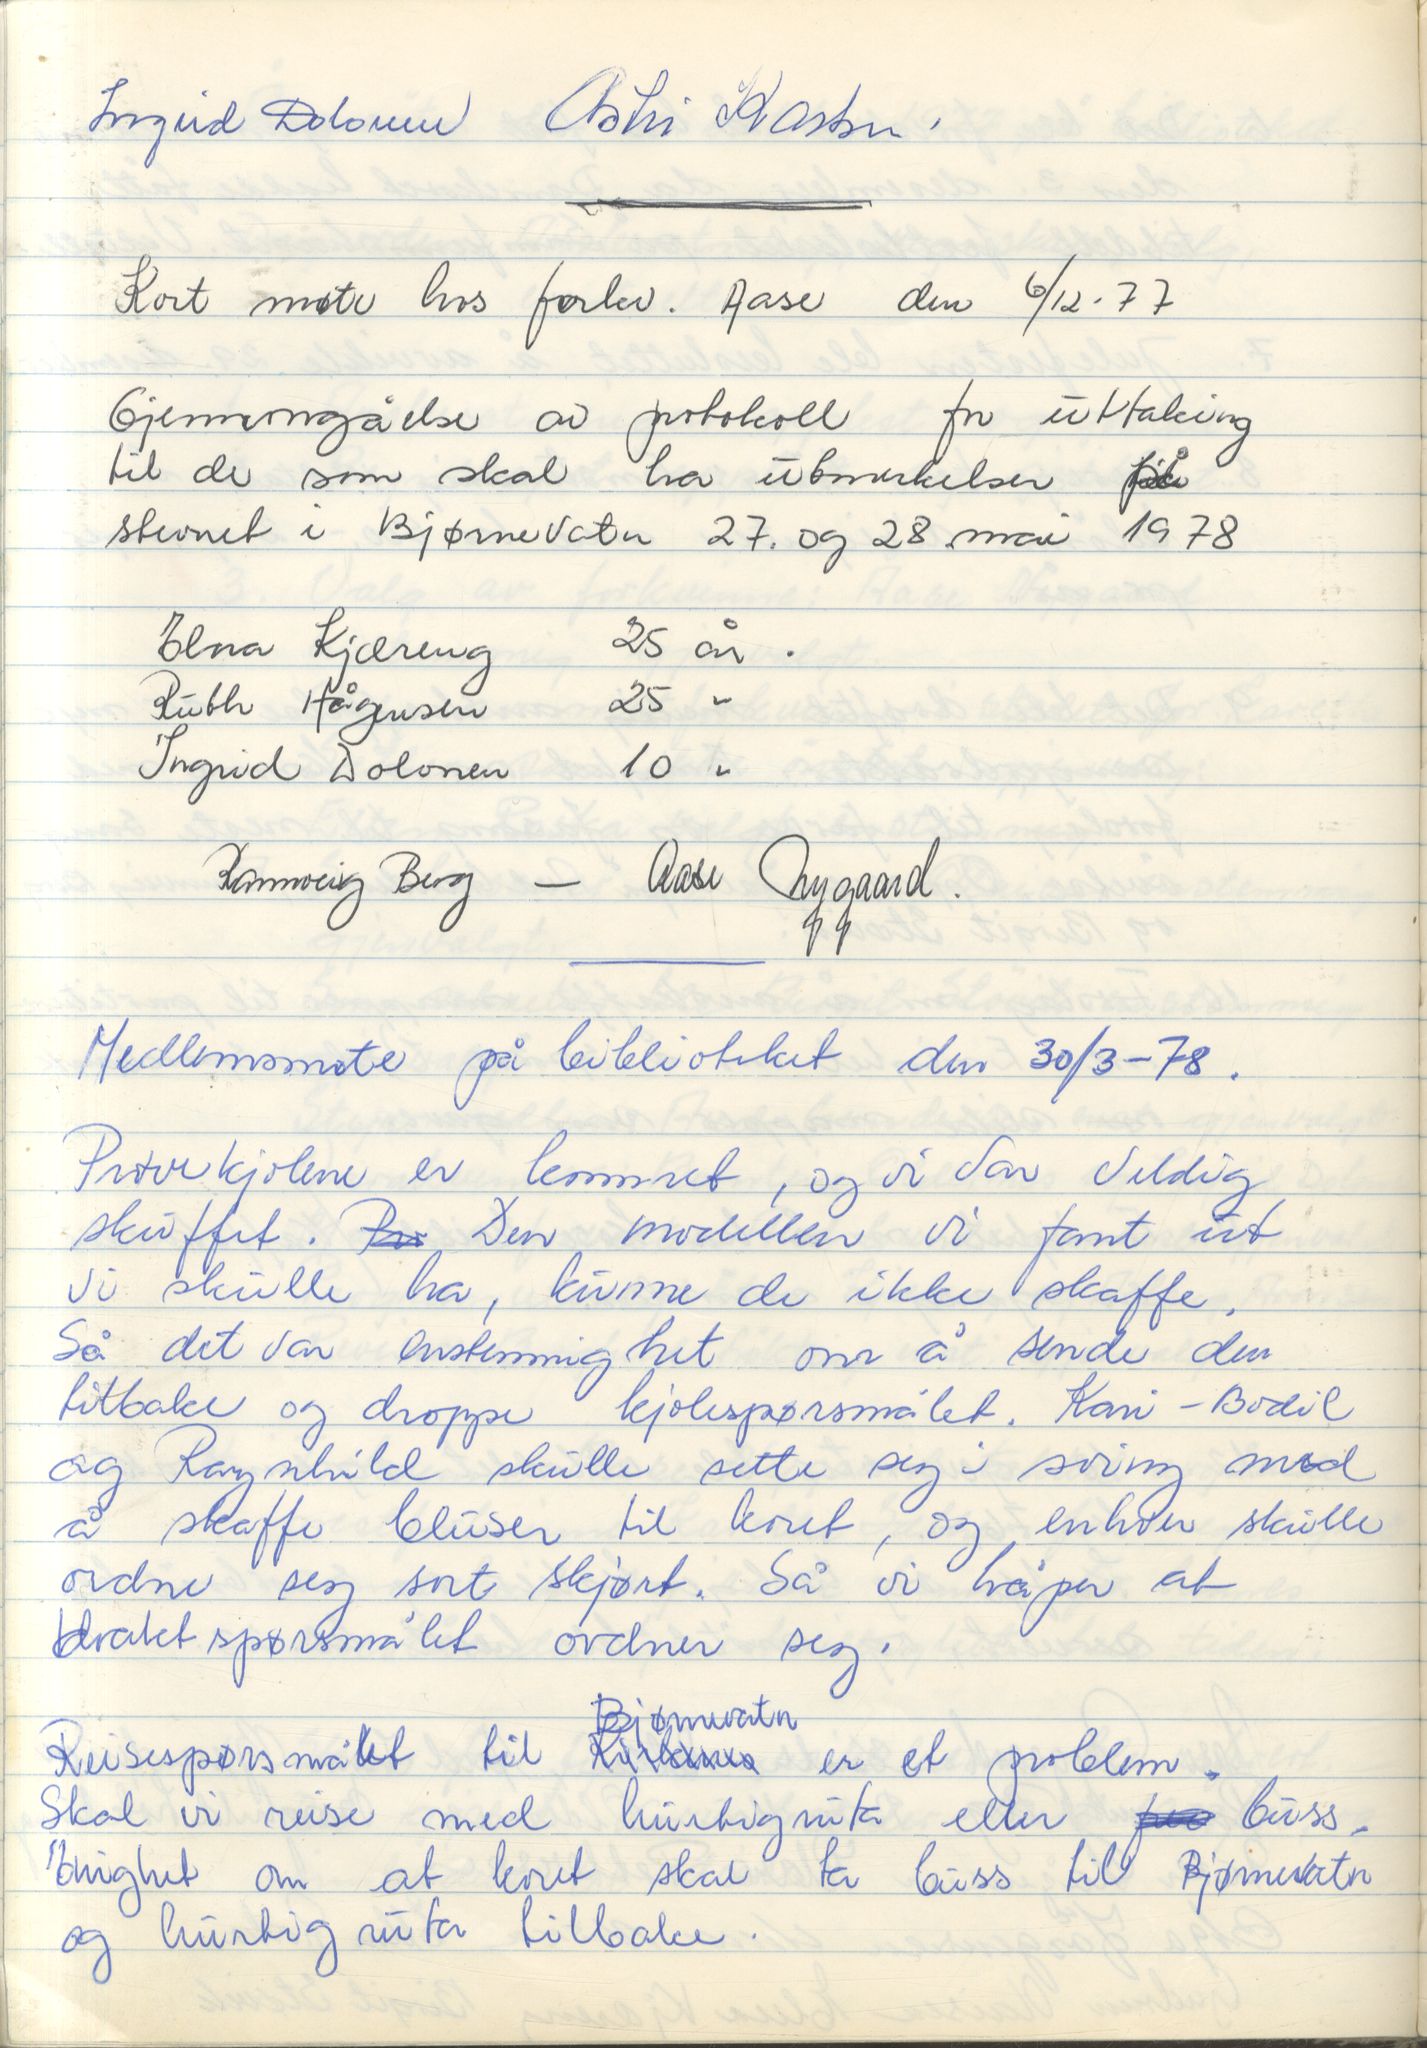 Ingrid Dolonen Astri Karlsen.
Kort møte hos forkv. Aase den 6/12-77
Gjennomgåelse av protokoll for uttaking
til de som skal ha utmerkelser på
stevnet i Bjørnevatn 27. og 28. mai 1978
Elna Kjæreng 25 år.
Ruth Hågensen 25 "
Ingrid Dolonen 10 "
Rannveig Berg — Aase Nygaard.
Medlemsmøte på biblioteket den 30/3-78.
Prøvekjolene er kommet, og vi var veldig
skuffet. Den modellen vi fant ut
vi skulle ha, kunne de ikke skaffe.
Så det var enstemmighet om å sende den
tilbake og droppe kjolespørsmålet. Kari-Bodil
og Ragnhild skulle sette seg i sving med
å skaffe bluser til koret, og enhver skulle
ordne seg sort skjørt. Så vi håper at
draktspørsmålet ordner seg.
Bjørnevatn
Reisespørsmålet til Kirkenes er et problem.
Skal vi reise med hurtigruta eller buss.
Enighet om at koret skal ta buss til Bjørnevatn
og hurtigruta tilbake.